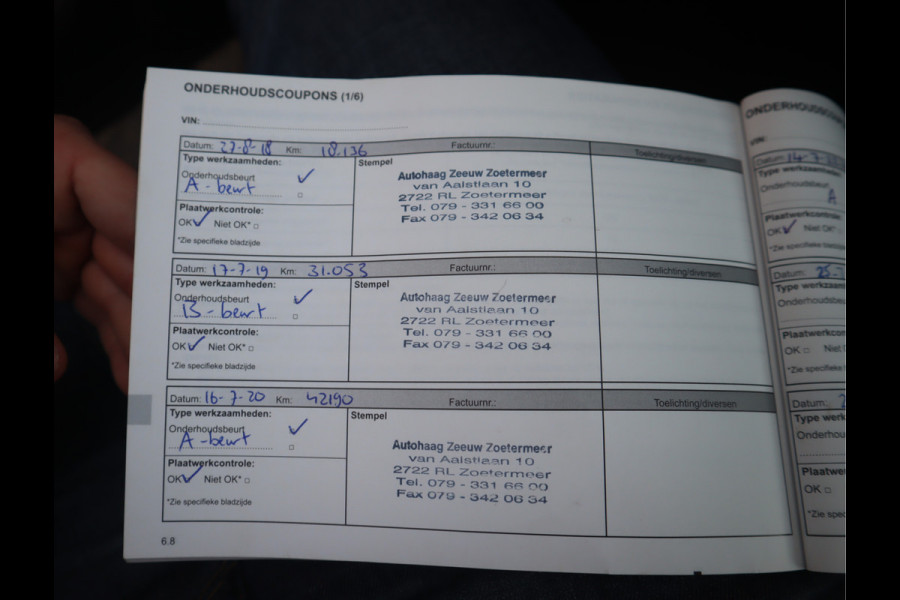 ONDERHOUDSCOUPONS (1/6)
VIN:
Datum: 27-8-18 Km: 18.136 Factuurnr.: Toelichting/diversen
Type werkzaamheden: Stempel
Onderhoudsbeurt
A-beurt
Plaatwerkcontrole:
OK Niet OK*
*Zie specifieke bladzijde
Autohaag Zeeuw Zoetermeer
van Aalstlaan 10
2722 RL Zoetermeer
Tel. 079 - 331 66 00
Fax 079 - 342 06 34
Datum: 17-7-19 Km: 31.053 Factuurnr.: Toelichting/diversen
Type werkzaamheden: Stempel
Onderhoudsbeurt
B-beurt
Plaatwerkcontrole:
OK Niet OK*
*Zie specifieke bladzijde
Autohaag Zeeuw Zoetermeer
van Aalstlaan 10
2722 RL Zoetermeer
Tel. 079 - 331 66 00
Fax 079 - 342 06 34
Datum: 16-7-20 Km: 42190 Factuurnr.: Toelichting/diversen
Type werkzaamheden: Stempel
Onderhoudsbeurt
A-beurt
Plaatwerkcontrole:
OK Niet OK*
*Zie specifieke bladzijde
Autohaag Zeeuw Zoetermeer
van Aalstlaan 10
2722 RL Zoetermeer
Tel. 079 - 331 66 00
Fax 079 - 342 06 34
6.8
VIN:
Datum:
Type
Onderhoudsbeurt
A
Plaatwerkcontrole
OK Niet
*Zie specifieke
Datum:
Type
Plaatwerkcon
OK Niet
*Zie specifieke
Datum:
Type werk
Onderhou
Plaatwe
OK
*Zie spe